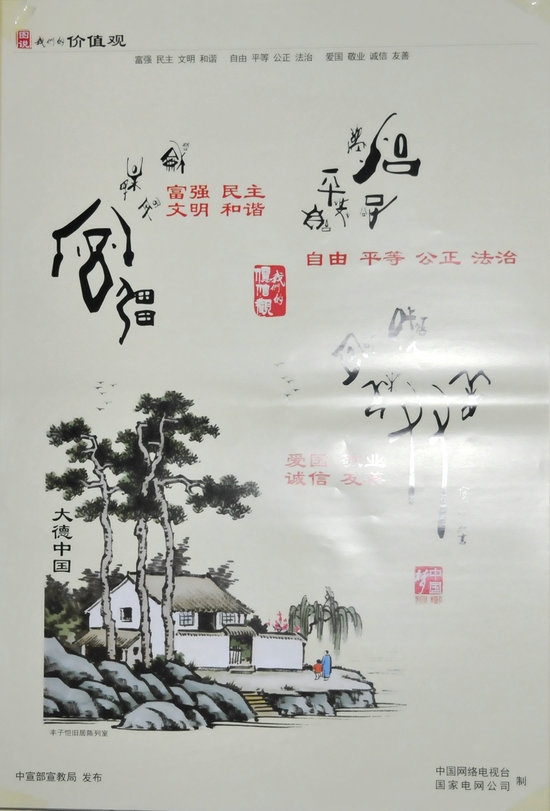 图说 我们的 价值观
富强 民主 文明 和谐 自由 平等 公正 法治 爱国 敬业 诚信 友善
富强 民主
文明 和谐
自由 平等 公正 法治
我们的
价值观
爱国 敬业
诚信 友善
大德中国
中国梦
丰子恺旧居陈列室
中宣部宣教局 发布
中国网络电视台
国家电网公司 制